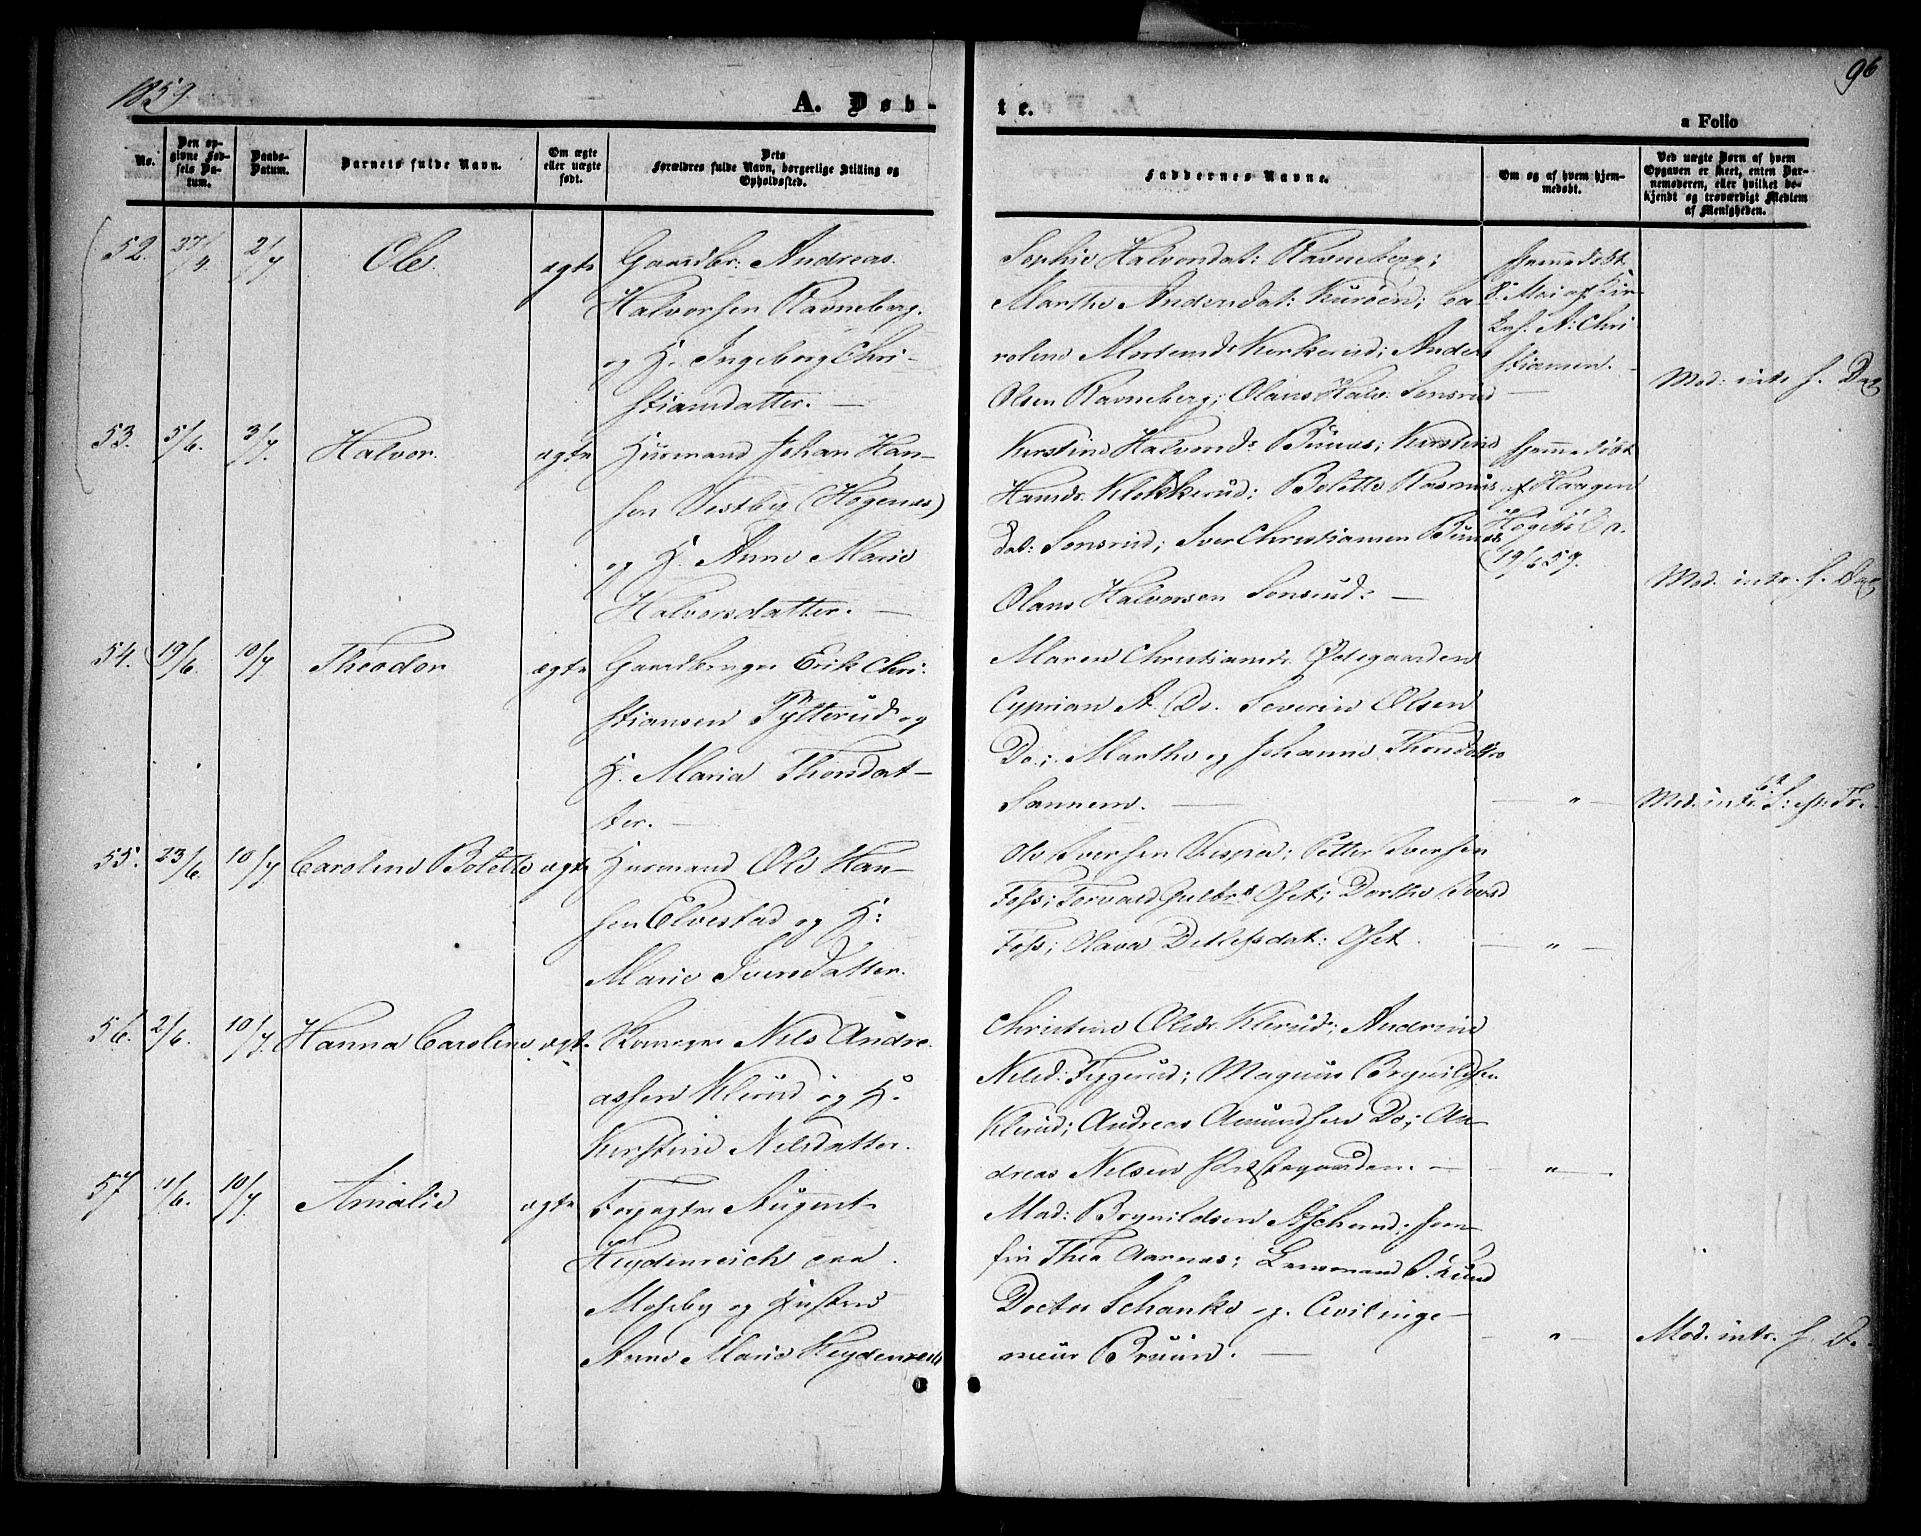 1859
96
A. Døb-
te.
a Folio
No.
Den op-
givne Fød-
sels Da-
tum.
Daabs-
Datum.
Barnets fulde Navn.
Om ægte
eller uægte
født.
Dets
Forældres fulde Navn, borgerlige Stilling og
Opholdssted.
Faddernes Navne.
Om og af hvem hjem-
medøbt.
Ved uægte Børn af hvem
Opgaven er skeet, enten Bar-
nemoderen, eller hvilket be-
kjendt og troværdigt Medlem
af Menigheden.
52. 27/4. 2/7 Ole. ægte
Gaardbr: Andreas
Halvorsen Ravneberg.
og H. Ingeborg Chri-
stiansdatter. —
Sophie Halvorsdat: Ravneberg;
Marthe Andersdat: Kursen; Ca-
roline Mortensdr Kirkerud; Anders
Olsen Ravneberg; Olaus Halv. Sonsrud
Hjemmedøbt
8. Mai af Kir-
Chri
stiansen. —
Mod: intr. f. Dag
53. 5/6. 3/7. Halvor. ægte
Husmand Johan Han-
sen Vestby (Hogenæs)
og H. Anne Marie
Halvorsdatter. —
Kirstine Halvorsdr Bunæs; Kirstine
Hansdr. Klekkerud; Bolette Rasmus-
dat: Sonsrud; Iver Christiansen Bunæs
Olaus Halvorsen Sonsrud. —
Hjemmedøbt
af Haagen
19/6 59.
Mod. intr. f. Dag
54. 19/6. 10/7 Theodor ægte
Gaardbruger Erik Chri-
stiansen Pytterud og
H. Maria Thorsdat-
ter. —
Maren Christiansdr. Ødegaarden
Cyprian A. Do. Severin Olsen
Do.; Marthe og Johanne Thorsdøttre
Sannem. —
— " —
Mod. intr.
55. 23/6. 10/7 Caroline Bolette ægte
Husmand Ole Han-
sen Elvestad og H:
Marie Iversdatter.
Ole Iversen Visped; Petter Iversen
Foss; Torvald Gulbrs Oset; Dorthe Iversd
Foss; Olava Detlefsdat: Oset.
— " —
56. 2/6. 10/7. Hanna Caroline ægte
Nils Andre-
assen Klerud og H.
Kirstine Nilsdatter.
Christine Olsdr. Klerud; Andrine
Nilsd: Fygerud; Magnus Brynildsen
Klerud; Andreas Amundsen Do; An-
dreas Nilsen Præstegaarden. —
— " —
57 11/6. 10/7. Amalie ægte
Forpagter August
Heydenreich paa
Moseby og Hustru
Anne Marie Heydenreich
Mad: Brynildsen Askerud; Frø-
kin Thea Aarnæs; Lensmand O. Lund
Doctor Schanke og Civilinge-
nieur Bruun. —
— " —
Mod. intr. f. D.